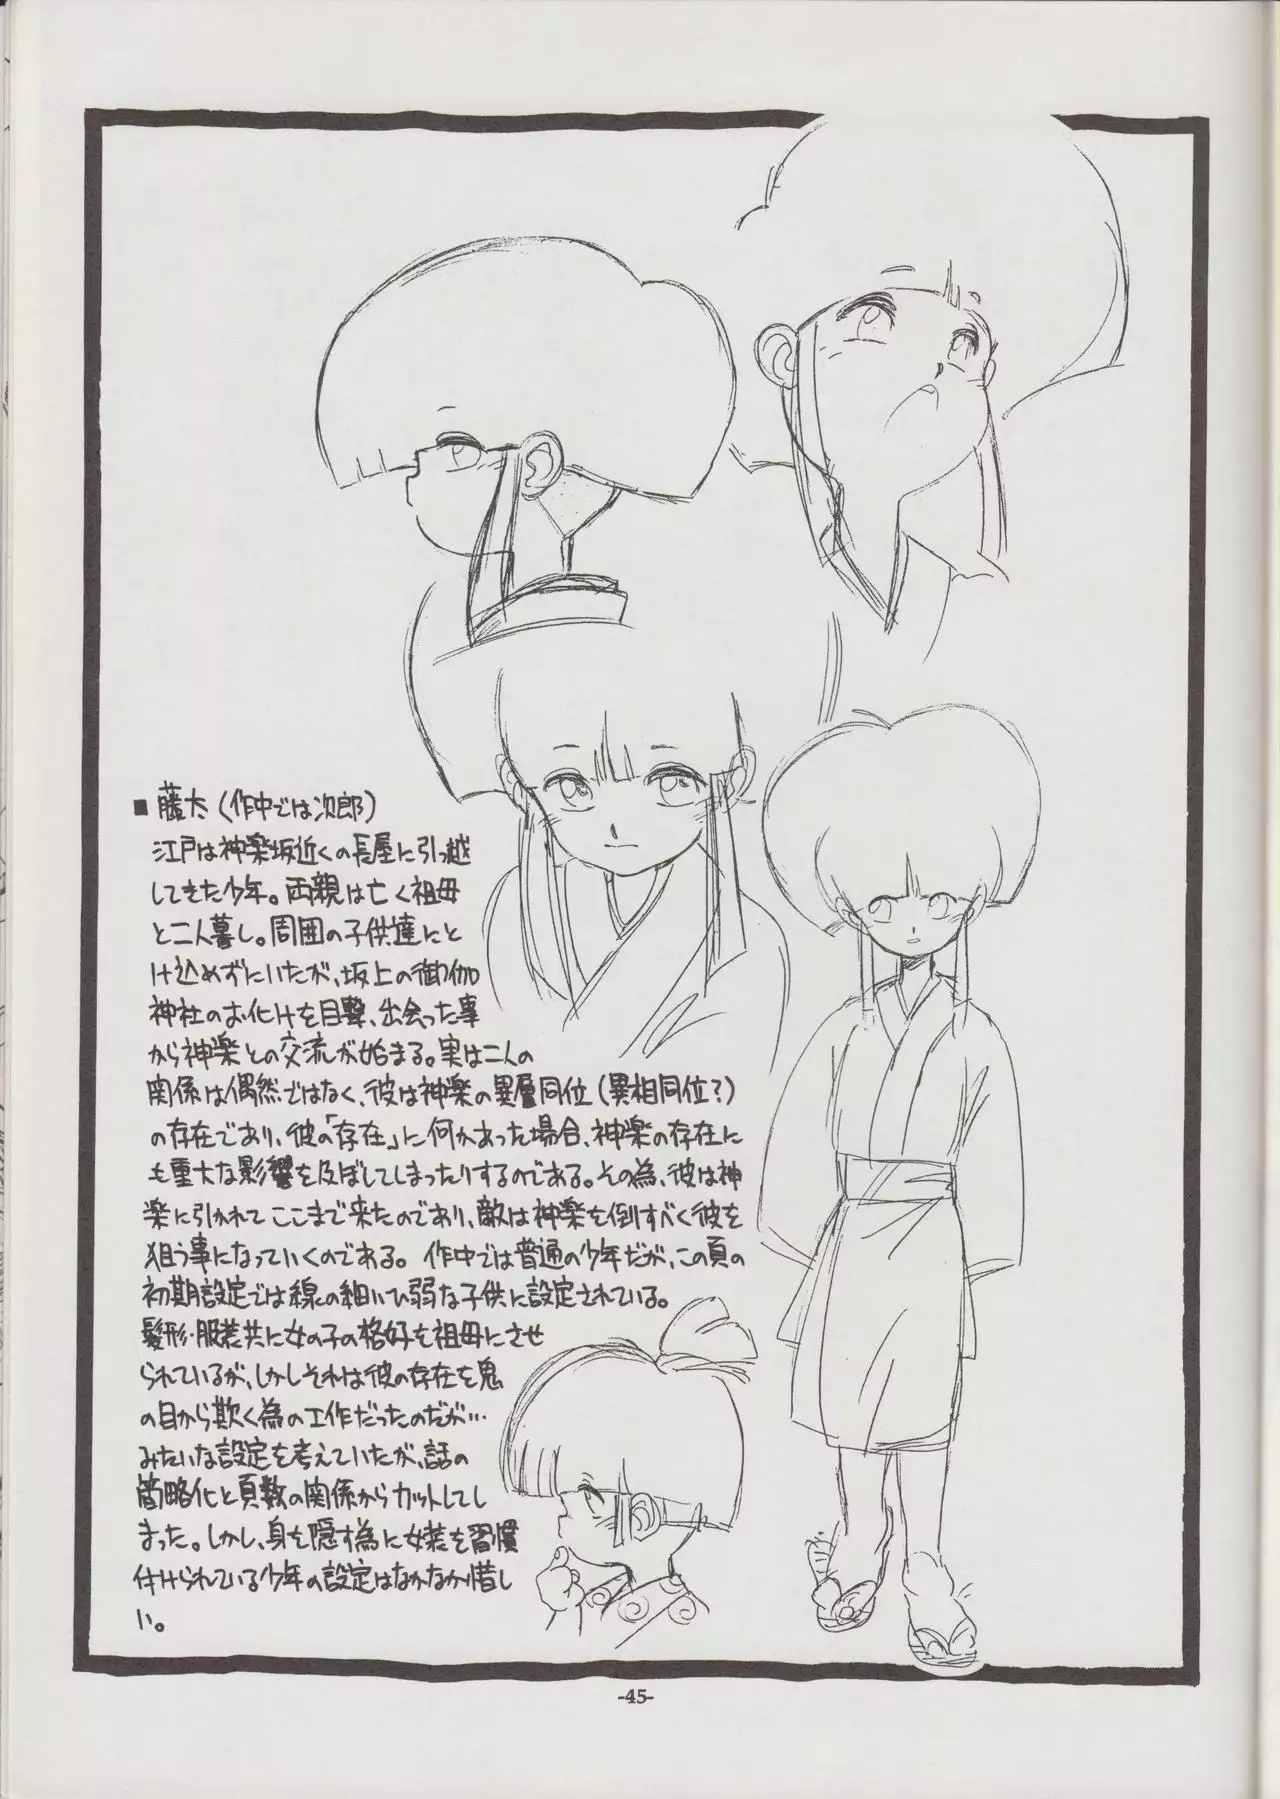 ■ 藤太（作中では次郎）
江戸は神楽坂近くの長屋に引っ越
してきた少年。両親は亡く祖母
と二人暮し。周囲の子供達にと
け込めずにいたが、坂上の御伽
神社のお化けを目撃、出会った事
から神楽との交流が始まる。実は二人の
関係は偶然ではなく、彼は神楽の異層同位（異相同位？）
の存在であり、彼の「存在」に何かあった場合、神楽の存在に
も重大な影響を及ぼしてしまったりするのである。その為、彼は神
楽に引かれてここまで来たのであり、敵は神楽を倒すべく彼を
狙う事になっていくのである。作中では普通の少年だが、この頁の
初期設定では線の細いひ弱な子供に設定されている。
髪形・服装共に女の子の格好を祖母にさせ
られているが、しかしそれは彼の存在を鬼
の目から欺く為の工作だったのだが…
みたいな設定を考えていたが、話の
簡略化と頁数の関係からカットしてし
まった。しかし、身を隠す為に女装を習慣
付けられている少年の設定はなかなか惜し
い。
-45-